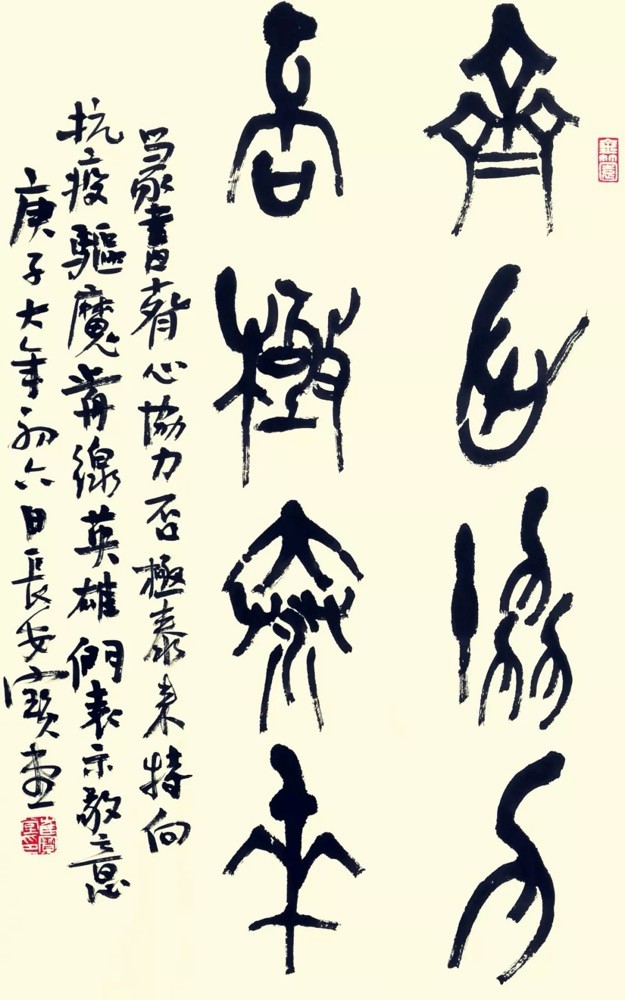 齊心協力
否極泰来
篆書齊心協力否極泰来特向
抗疫驅魔前線英雄們表示敬意
庚子大年初六日長安寶堂